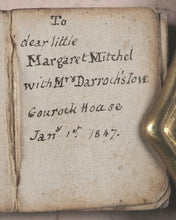 To
dear little
Margaret Mitchel
with Mrs Darroch's love
Gourock House
Jany 1st 1847.